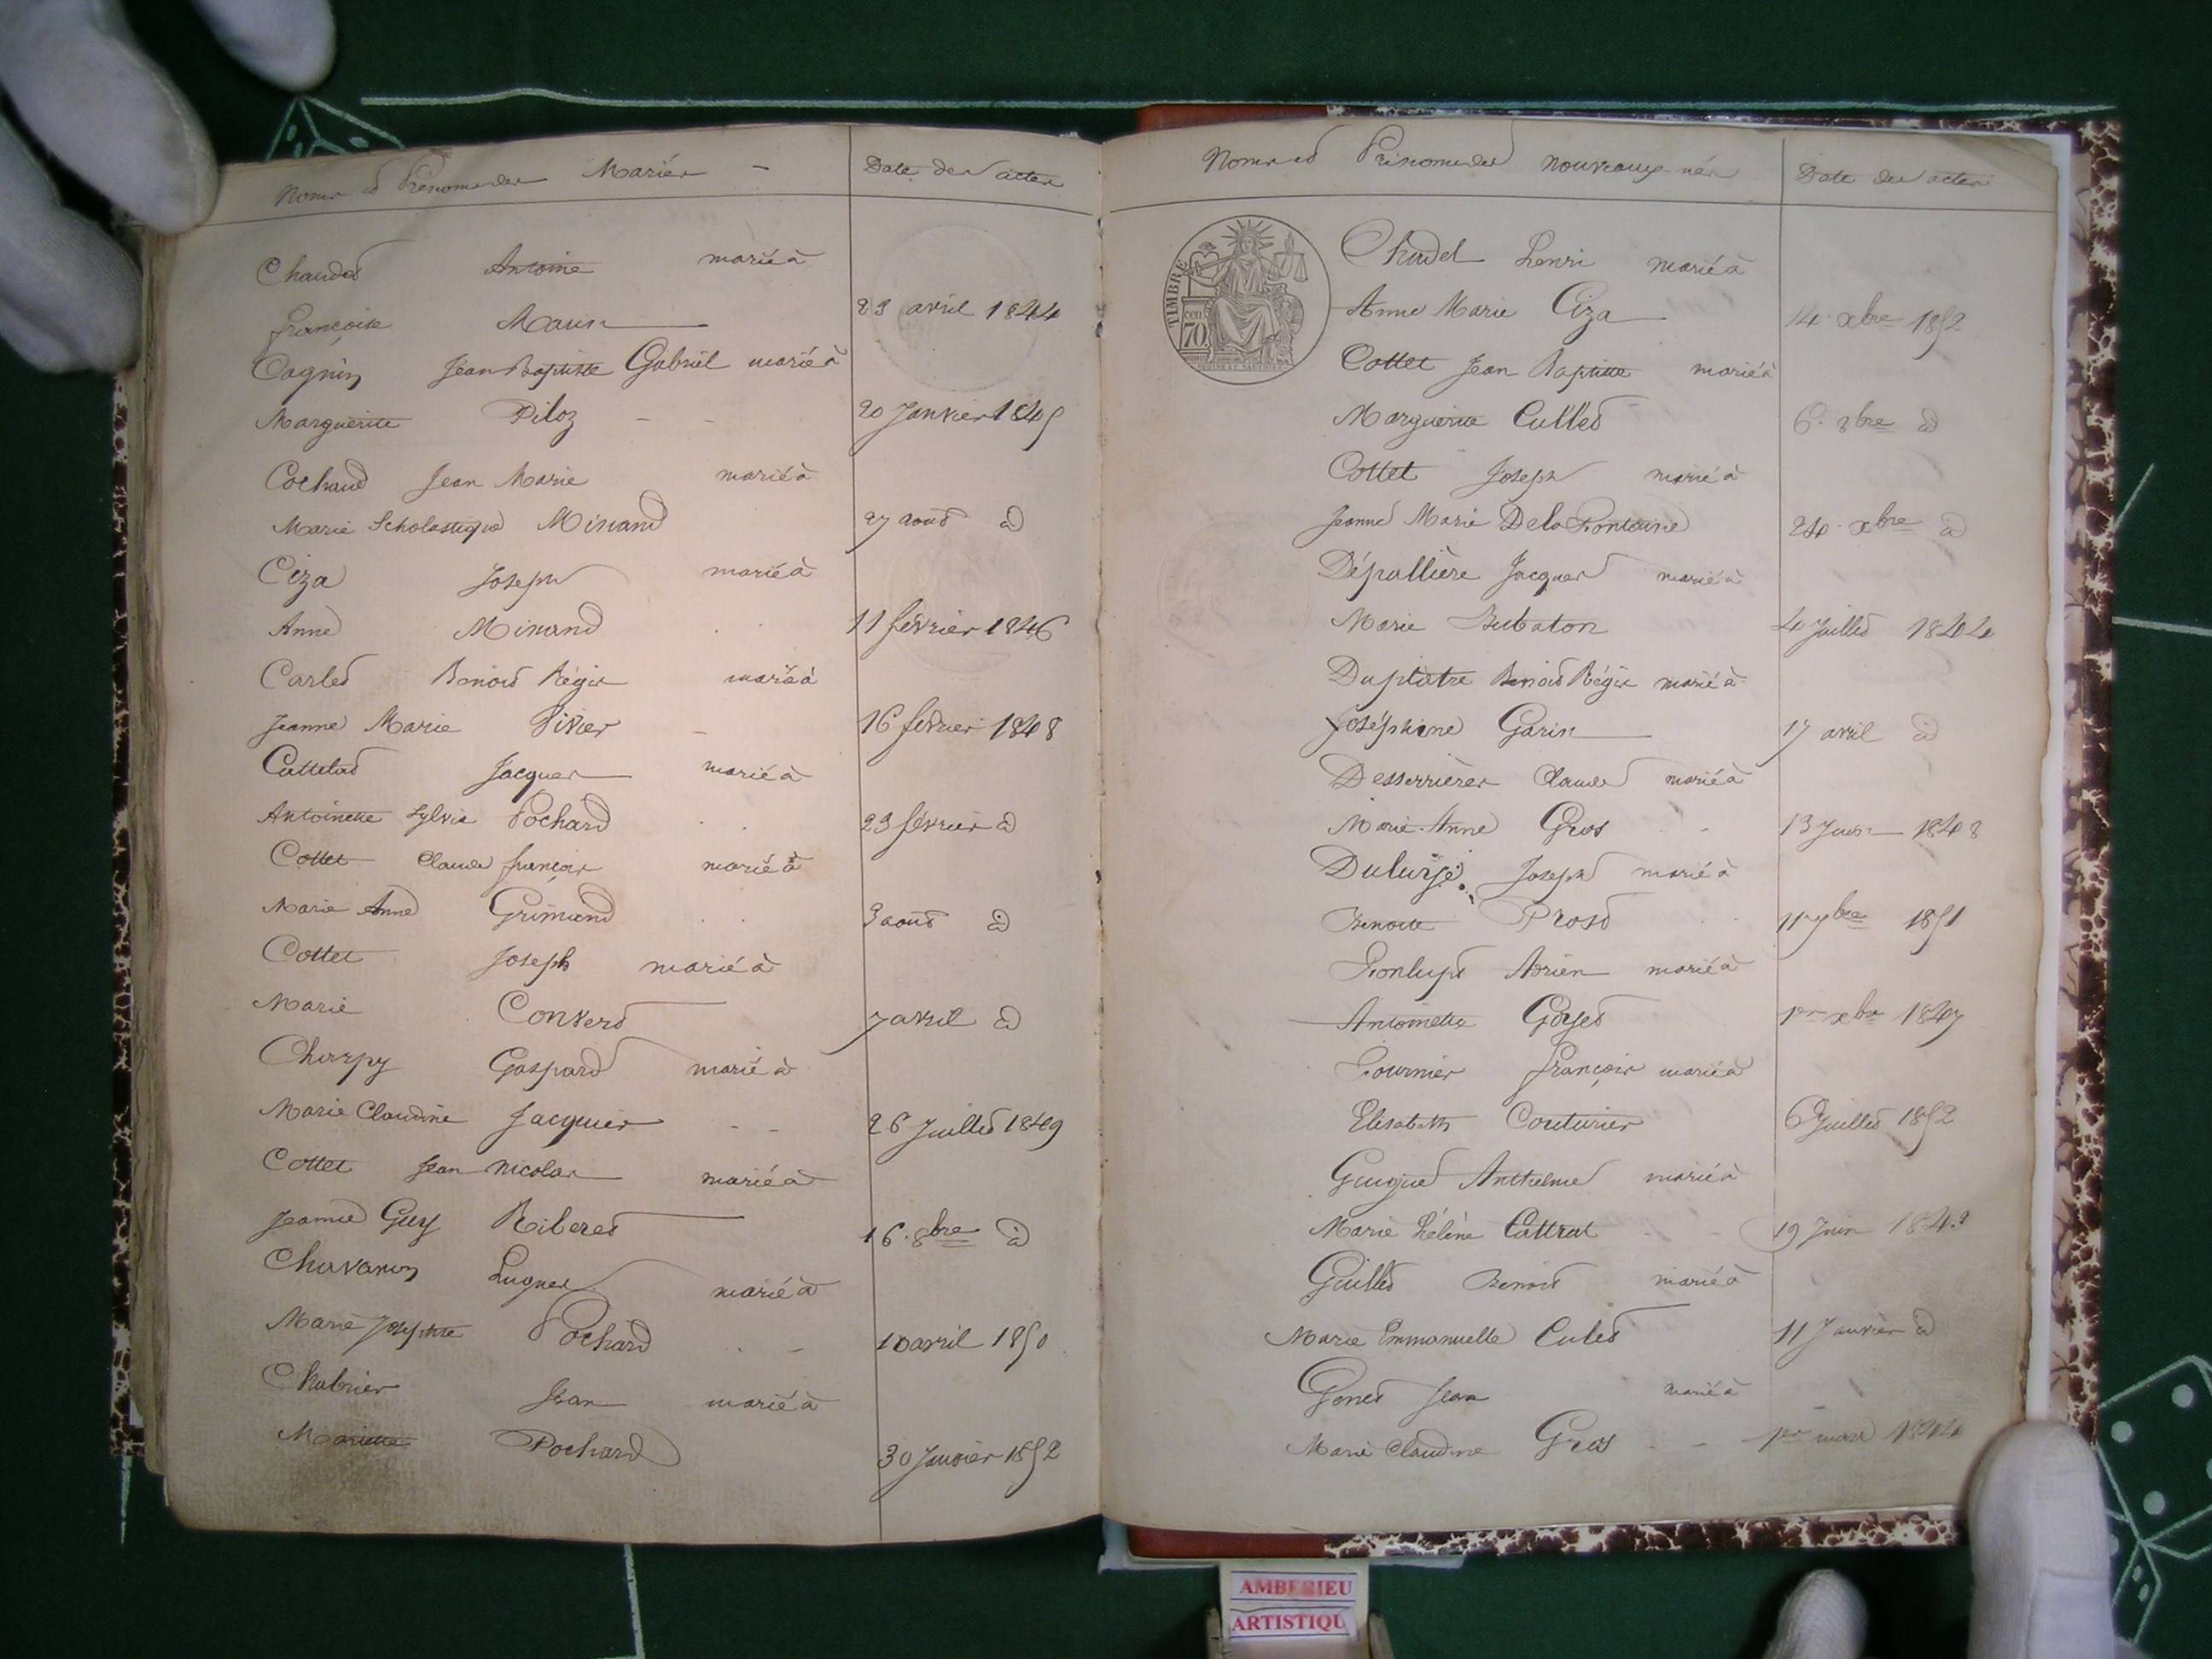 Noms et Prénoms des Mariés - Date des actes
Chaudet Antoine marié à
françoise Marin 23 avril 1844
Cagnin Jean Baptiste Gabriel marié à
Marguerite Piloz - - 20 Janvier 1845
Cochaud Jean Marie marié à
Marie Scholastique Minand 27 aout id
Ciza Joseph marié à
Anne Minand 11 février 1846
Carlet Benoit Régis marié à
Jeanne Marie Vivier - 16 février 1848
Jacques marié à
Antoinette Sylvie Pochard 23 février id
Cottet Claude françois marié à
Marie Anne Grimand 3 aout id
Cottet Joseph marié à
Marie Convert 7 avril id
Charpy Gaspard marié à
Marie Claudine Jacquier - - 26 Juillet 1849
Cottet Jean Nicolas marié à
Jeanne Guy Riberet 16. 8bre id
Chavanon Hugues marié à
Marie Josephte Pochard - 10 avril 1850
Chabrier Jean marié à
Mariette Pochard 30 Janvier 1852
Noms et Prénoms des nouveaux nés Date des actes
TIMBRE
70
Chudet henri marié à
Anne Marie Ciza 14 xbre 1852
Cottet Jean Baptiste marié à
Marguerite Cullet 6. 8bre id
Cottet Joseph marié à
Jeanne Marie Dela Fontaine 24 xbre id
Dépallière Jacques marié à
Marie Bubaton 4 Juillet 1844
Duplatre Benoit Régis marié à
Joséphine Garin 17 avril id
Desserrières Claude marié à
Marie Anne Gros - 13 Juin 1848
Joseph marié à
Benoite Prost 11 9bre 1851
Fonlupt Adrien marié à
Antoinette Goyet 1er xbre 1847
Fournier françois marié à
Elisabeth Couturier 6 Juillet 1852
Guigue Anthelme marié à
Marie hélène Cattrat - - 19 Juin 1843
Guillet Benoit marié à
Marie Emmanuelle Culet 11 Janvier id
Genet Jean marié à
Marie Claudine Gros - - 1er mars 1844
AMBERIEU
ARTISTIQU